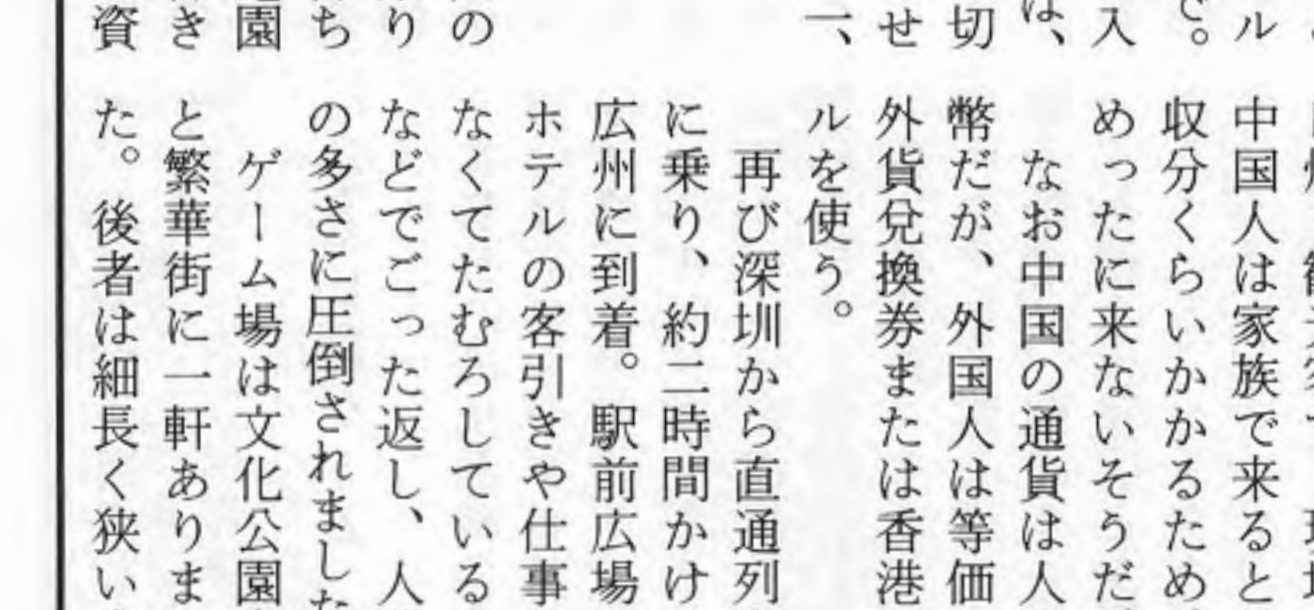 ル
で。
入
は、
切
せ
一、
の
り
ち
園
き
資
中国人は家族で来ると
収分くらいかかるため
めったに来ないそうだ
なお中国の通貨は人
幣だが、外国人は等価
外貨兌換券または香港
ルを使う。
再び深圳から直通列
に乗り、約二時間かけ
広州に到着。駅前広場
ホテルの客引きや仕事
なくてたむろしている
などでごった返し、人
の多さに圧倒されました
ゲーム場は文化公園
と繁華街に一軒ありま
た。後者は細長く狭い